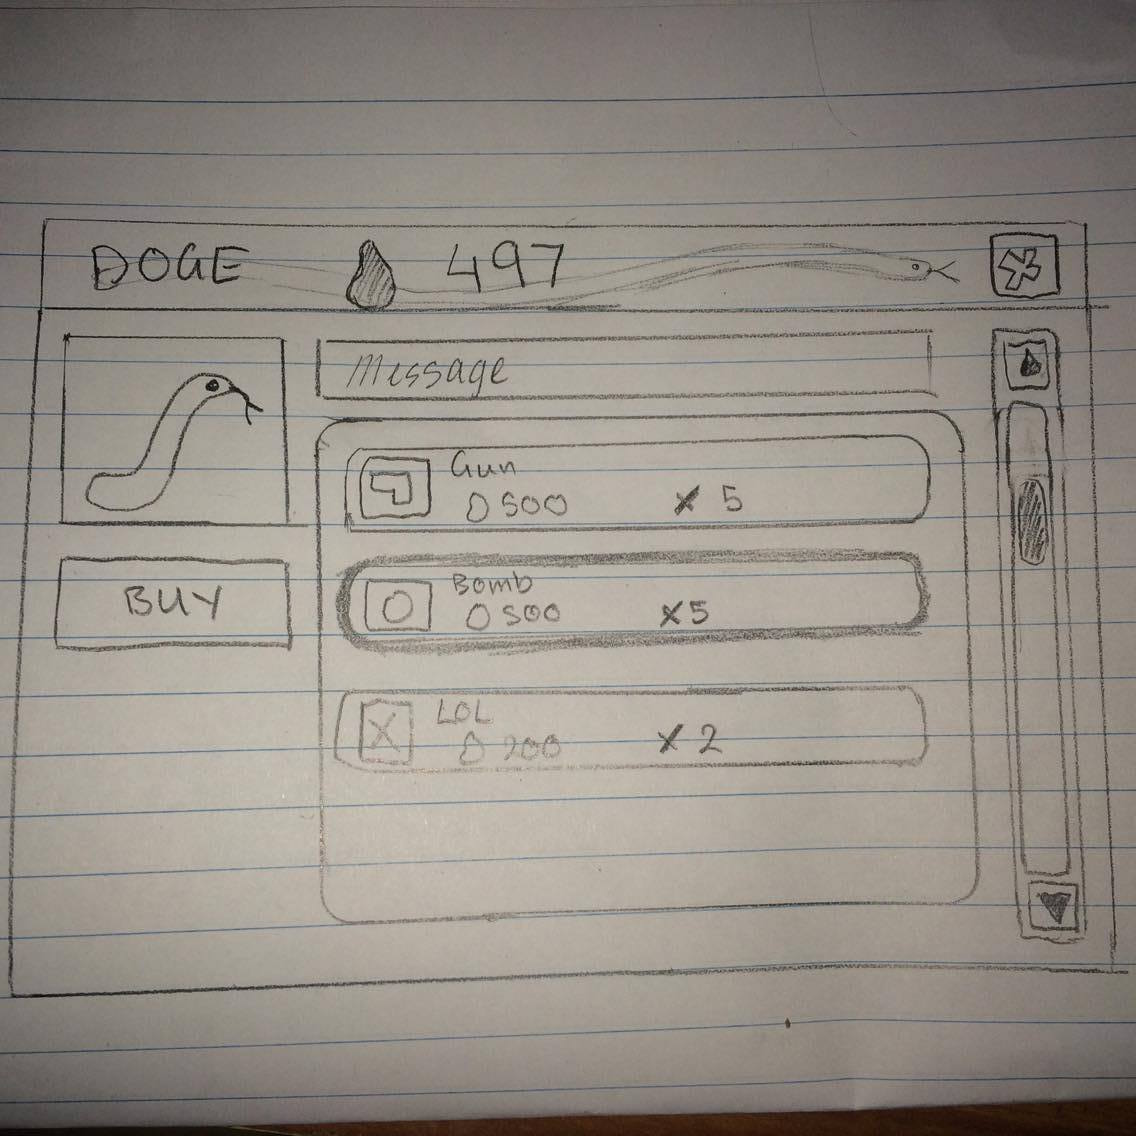 DOGE 497
Message
Gun
500 x 5
Bomb
500 x5
BUY
LOL
200 x 2